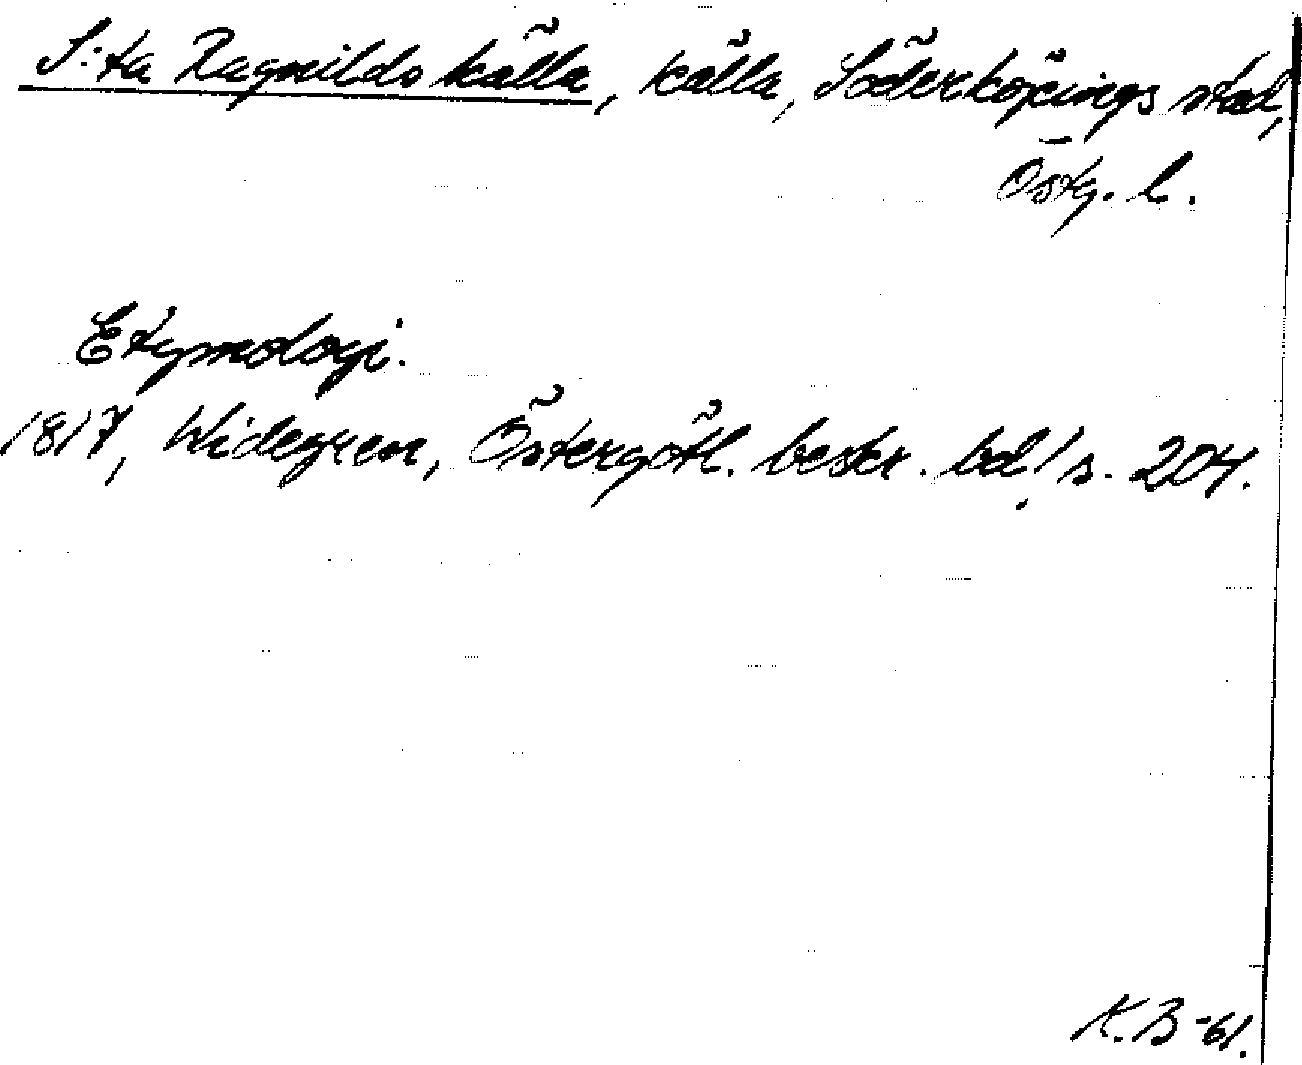 S:ta Ragnilds källa, källa, Söderköpings stad,
Östg. l.
Etymologi.
1817, Widegren, Östergötl. beskr. bd 1 s. 204.
K.B-61.